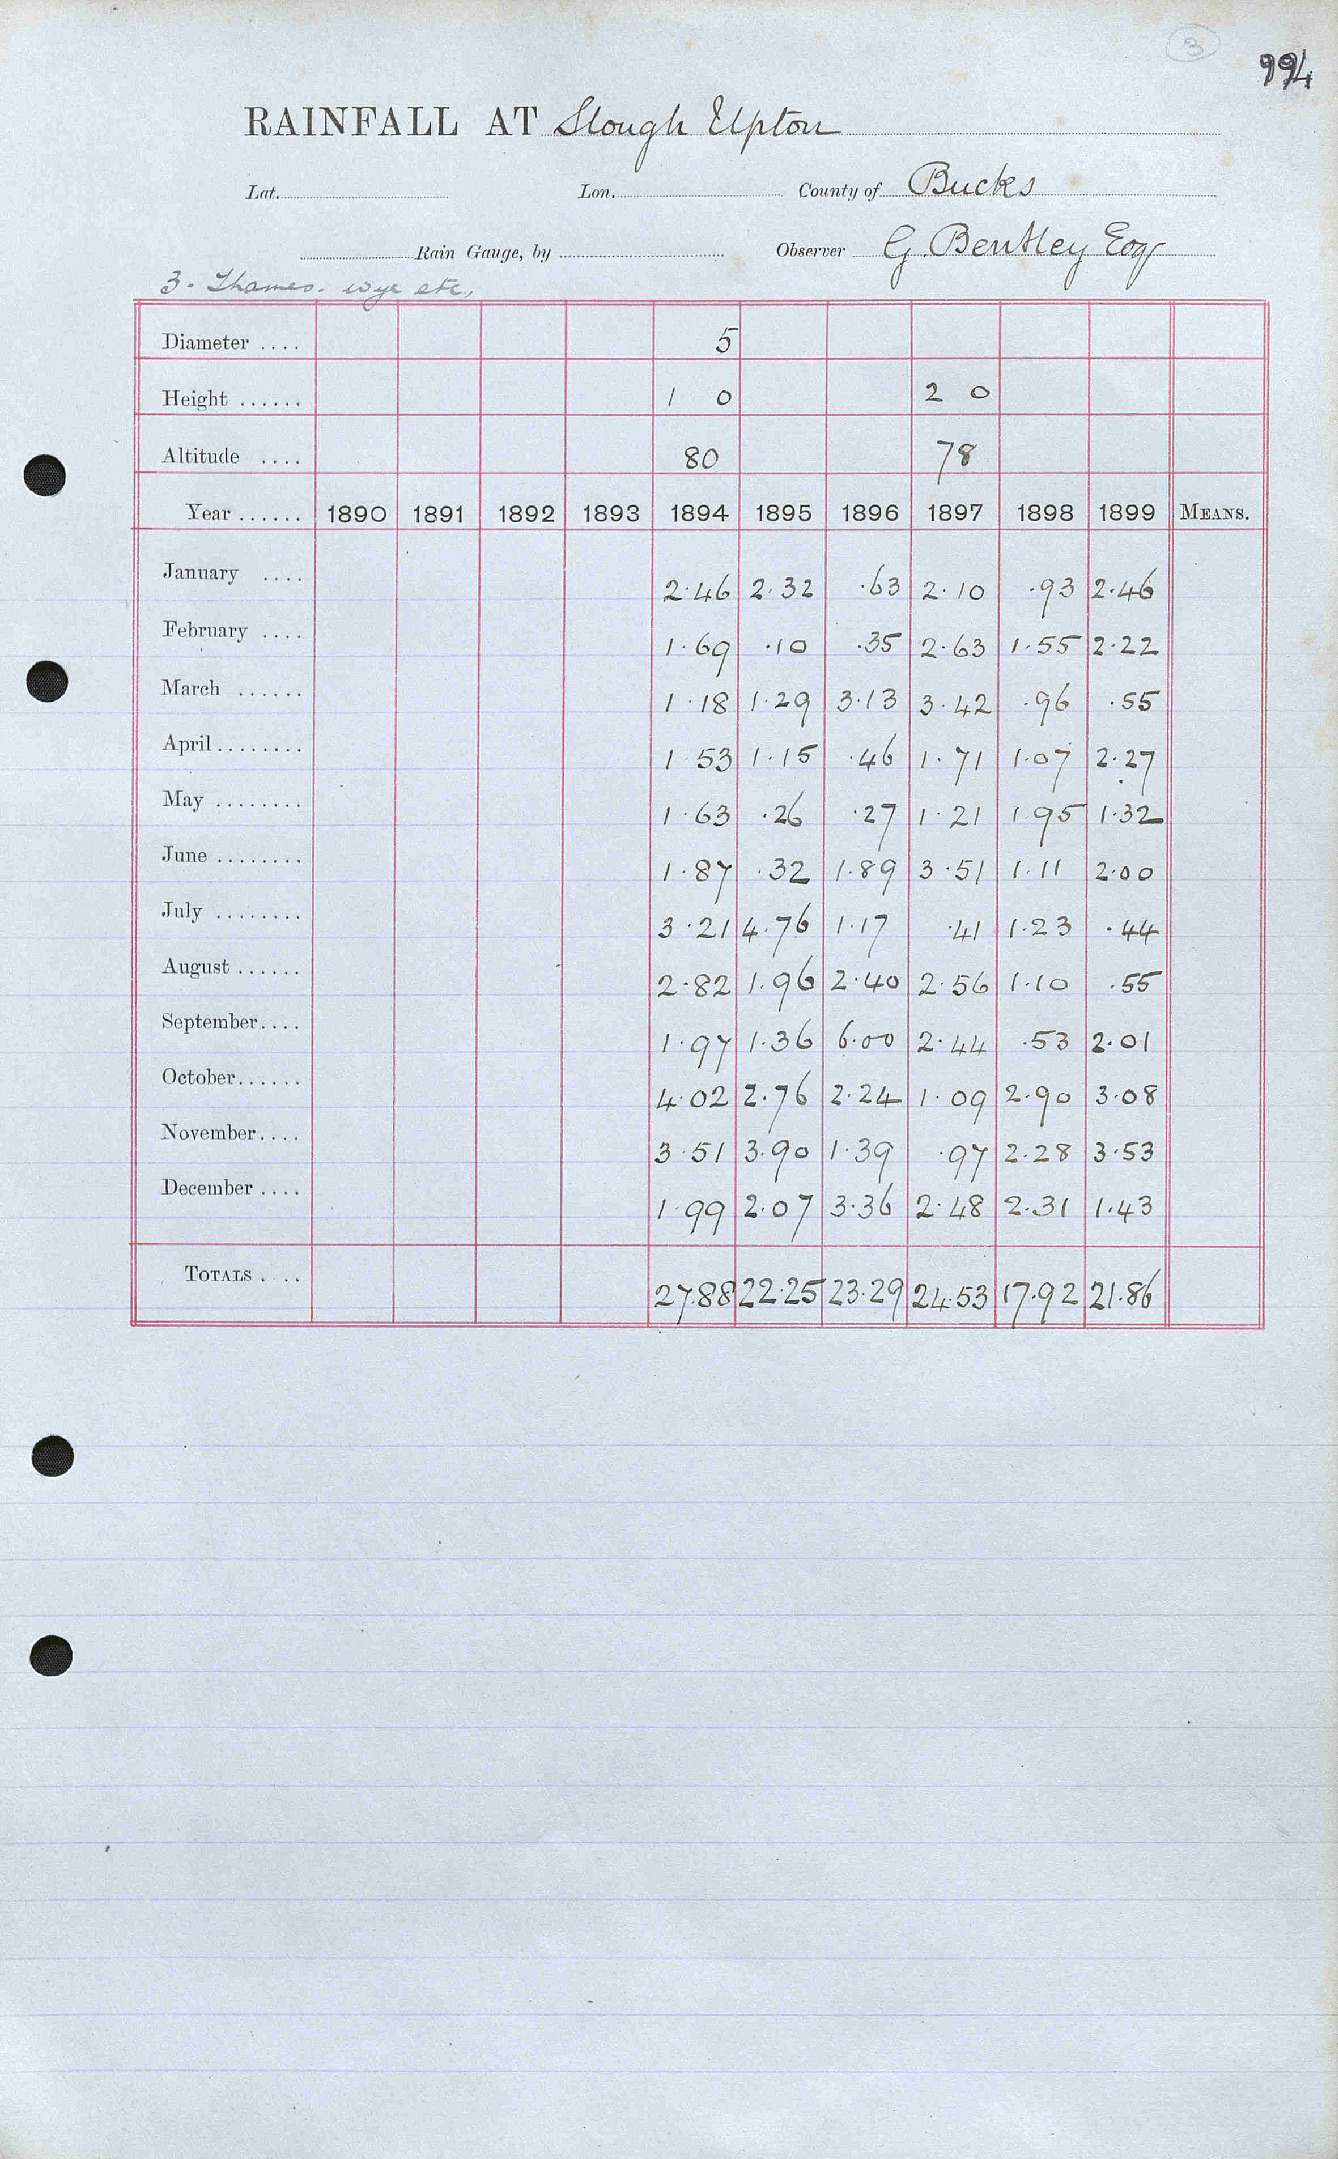 3
994
RAINFALL AT Slough Upton
Lat. Lon. County of Bucks
Rain Gauge, by Observer G Bentley Esqr
3. Thames. Wye etc,
Diameter .... 5
Height ...... 1 0 2 0
Altitude .... 80 78
Year ...... 1890 1891 1892 1893 1894 1895 1896 1897 1898 1899 MEANS.
January .... 2.46 2.32 .63 2.10 .93 2.46
February .... 1.69 .10 .35 2.63 1.55 2.22
March ...... 1.18 1.29 3.13 3.42 .96 .55
April ........ 1.53 1.15 .46 1.71 1.07 2.27
May ........ 1.63 .26 .27 1.21 1.95 1.32
June ........ 1.87 .32 1.89 3.51 1.11 2.00
July ........ 3.21 4.76 1.17 .41 1.23 .44
August ...... 2.82 1.96 2.40 2.56 1.10 .55
September.... 1.97 1.36 6.00 2.44 .53 2.01
October...... 4.02 2.76 2.24 1.09 2.90 3.08
November.... 3.51 3.90 1.39 .97 2.28 3.53
December .... 1.99 2.07 3.36 2.48 2.31 1.43
TOTALS .... 27.88 22.25 23.29 24.53 17.92 21.86